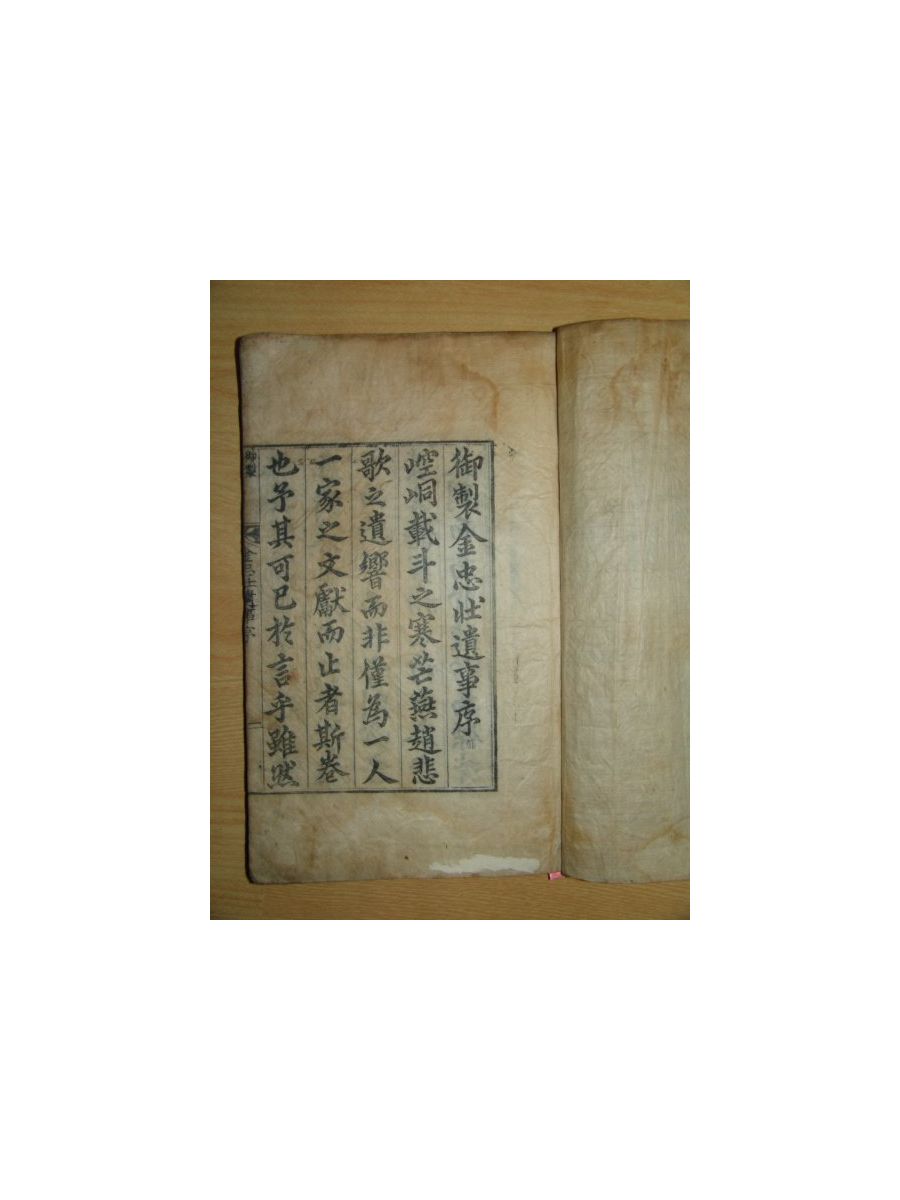 御製金忠壯遺事序
崆峒載斗之寒芒燕趙悲
歌之遺響而非僅為一人
一家之文獻而止者斯卷
也予其可已於言乎雖然
御製